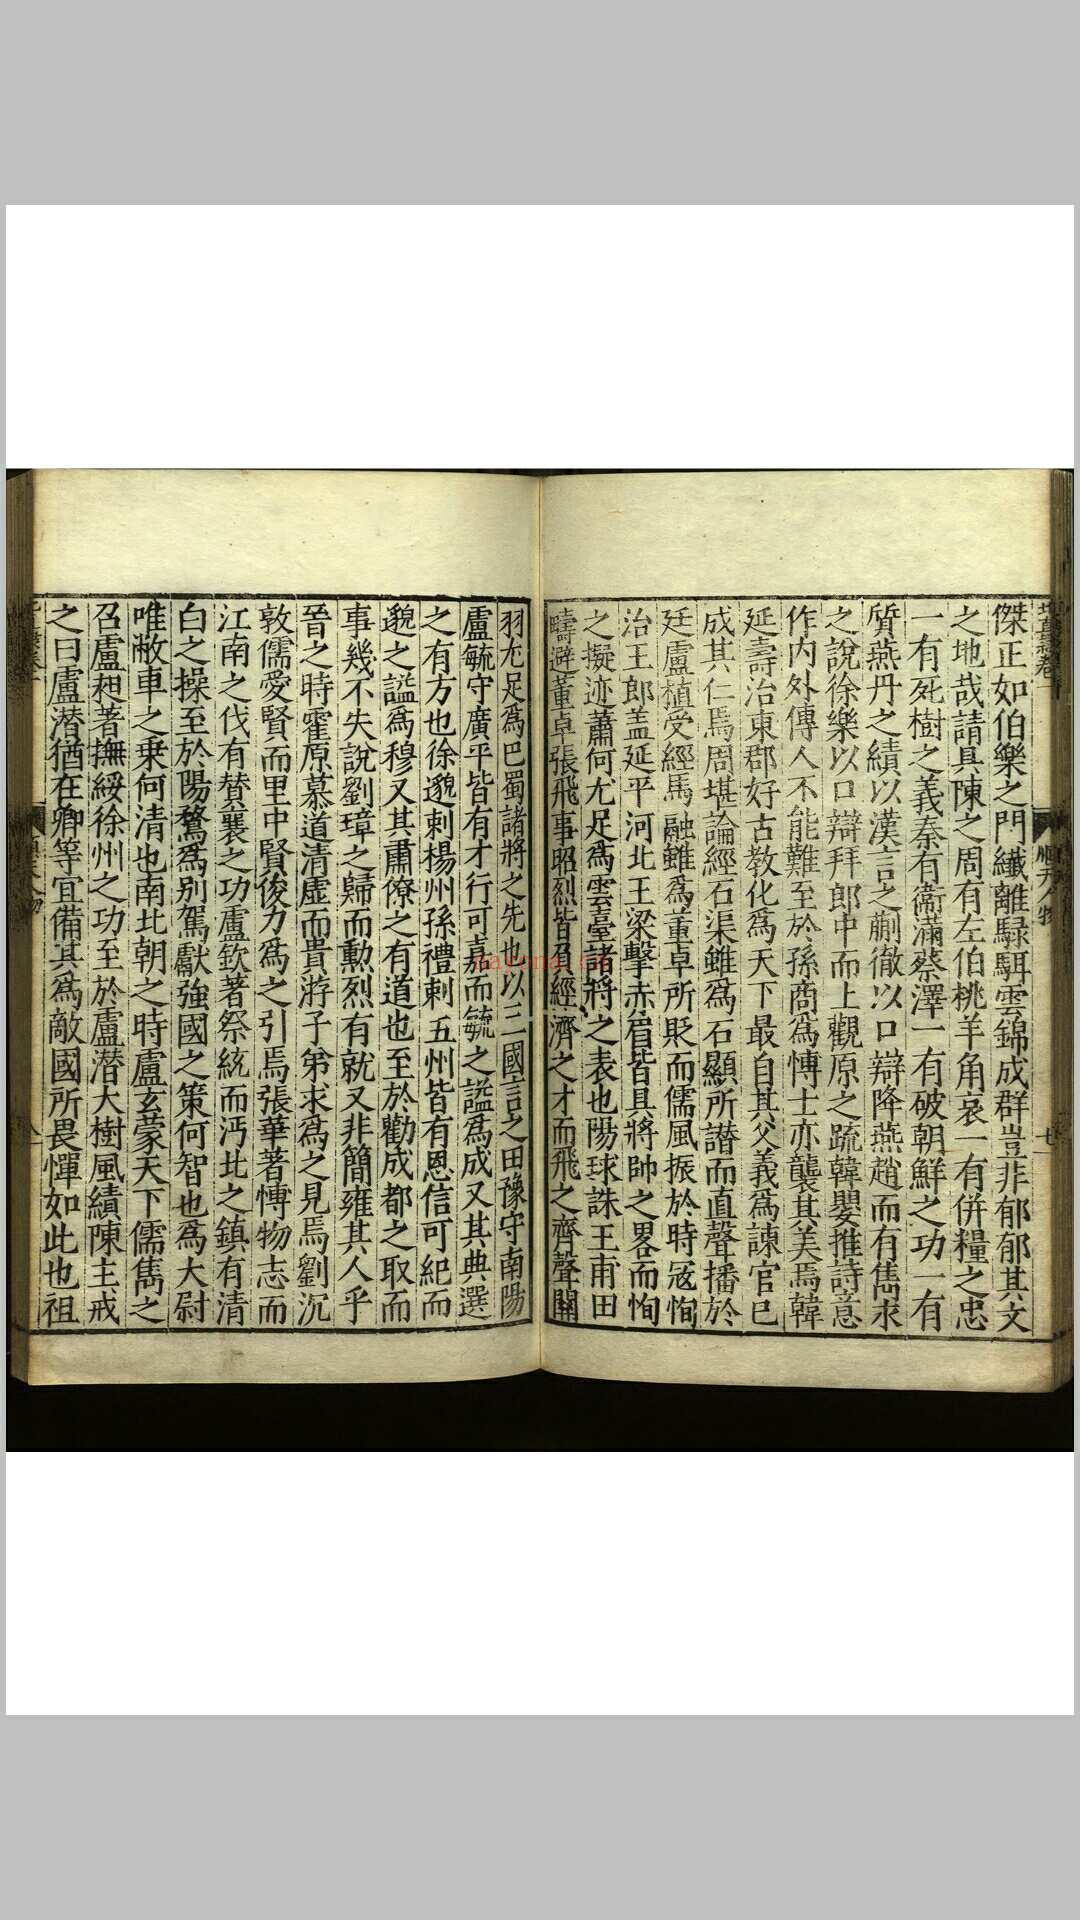 傑正如伯樂之門纖離騄駬雲錦成群豈非郁郁其文
之地哉請具陳之周有左伯桃羊角哀一有併糧之忠
一有死樹之義秦有衞滿蔡澤一有破朝鮮之功一有
質燕丹之績以漢言之蒯徹以口辯降燕趙而有雋求
之說徐樂以口辯拜郎中而上觀原之䟽韓嬰推詩意
作內外傳人不能難至於孫商為博士亦襲其美焉韓
延壽治東郡好古教化為天下最自其父義為諫官已
成其仁焉周堪論經石渠雖為石顯所譖而直聲播於
廷盧植受經馬融雖為董卓所貶而儒風振於時冦恂
治王郎盖延平河北王梁擊赤眉皆具將帥之畧而恂
之擬迹蕭何尤足為雲臺諸將之表也陽球誅王甫田
疇避董卓張飛事昭烈皆負經濟之才而飛之齊聲關
羽尤足為巴蜀諸將之先也以三國言之田豫守南陽
盧毓守廣平皆有才行可嘉而毓之諡為成又其典選
之有方也徐邈刺楊州孫禮刺五州皆有恩信可紀而
邈之諡為穆又其肅僚之有道也至於勸成都之取而
事幾不失說劉璋之歸而勲烈有就又非簡雍其人乎
晉之時霍原慕道清虛而貴游子弟求為之見焉劉沉
敦儒愛賢而里中賢俊力為之引焉張華著博物志而
江南之伐有賛襄之功盧欽著祭統而沔北之鎮有清
白之操至於陽騖為別駕獻強國之策何智也為大尉
唯敝車之乗何清也南北朝之時盧玄蒙天下儒雋之
召盧昶著撫綏徐州之功至於盧潜大樹風績陳主戒
之曰盧潜猶在卿等宜備其為敵國所畏憚如此也祖